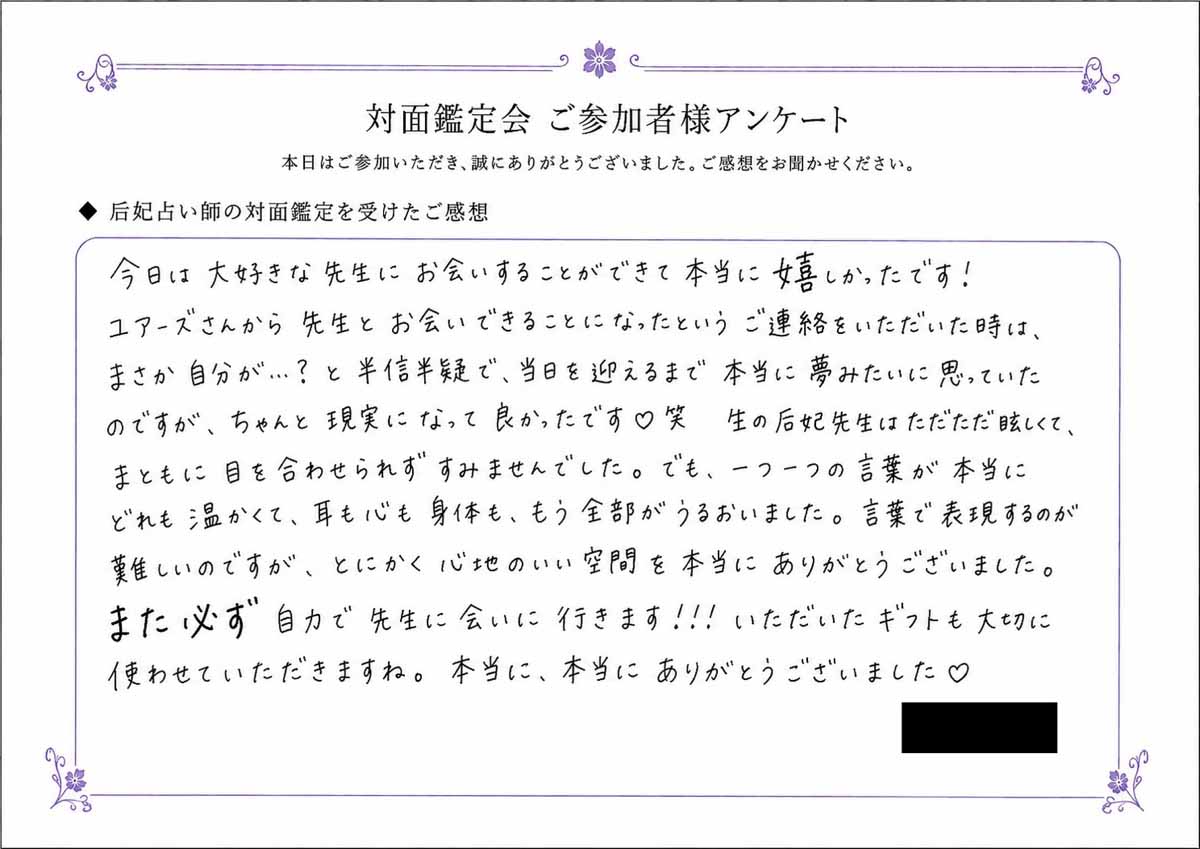 対面鑑定会 ご参加者様アンケート
本日はご参加いただき、誠にありがとうございました。ご感想をお聞かせください。
◆ 后妃占い師の対面鑑定を受けたご感想
今日は 大好きな 先生に お会いすることができて 本当に 嬉しかったです!
ユアーズさんから 先生と お会いできることになったという ご連絡をいただいた時は、
まさか 自分が…? と 半信半疑で、当日を迎えるまで 本当に 夢みたいに 思っていた
のですが、ちゃんと 現実になって 良かったです♡笑 生の后妃先生はただただ眩しくて、
まともに 目を合わせられず すみませんでした。でも、一つ一つの言葉が 本当に
どれも 温かくて、耳も心も 身体も、もう 全部が うるおいました。言葉で表現するのが
難しいのですが、とにかく 心地のいい空間を 本当に ありがとうございました。
また必ず 自力で 先生に 会いに 行きます!!! いただいた ギフトも 大切に
使わせていただきますね。 本当に、本当に ありがとうございました♡